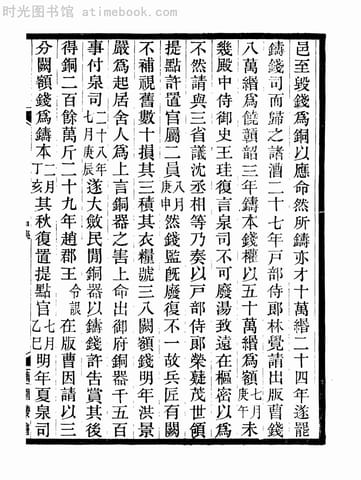 时光图书馆 atimebook.com
邑至毀錢爲銅以應命然所鑄亦才十萬緡二十四年遂罷
鑄錢司而歸之諸漕二十七年戶部侍郎林覺請出版曹錢
八萬緡爲饒贛韶三年鑄本錢權以五十萬緡爲額七月未庚午
幾殿中侍御史王珪復言泉司不可廢湯致遠在樞密以爲
不然請與三省議沈丞相等乃奏以戶部侍郎榮薿茂世領
提點許置官屬二員八月庚申然錢監旣廢復不一故兵匠有闕
不補視舊數十損其三積其衣糧號三八闕額錢明年洪景
嚴爲起居舍人爲上言銅器之害上命出御府銅器千五百
事付泉司二十八年七月庚辰遂大斂民閒銅器以鑄錢許告賞其後
得銅二百餘萬斤二十九年趙郡王令詪在版曹因請以三
分闕額錢爲鑄本二月丁亥其秋復置提點官七月乙巳明年夏泉司